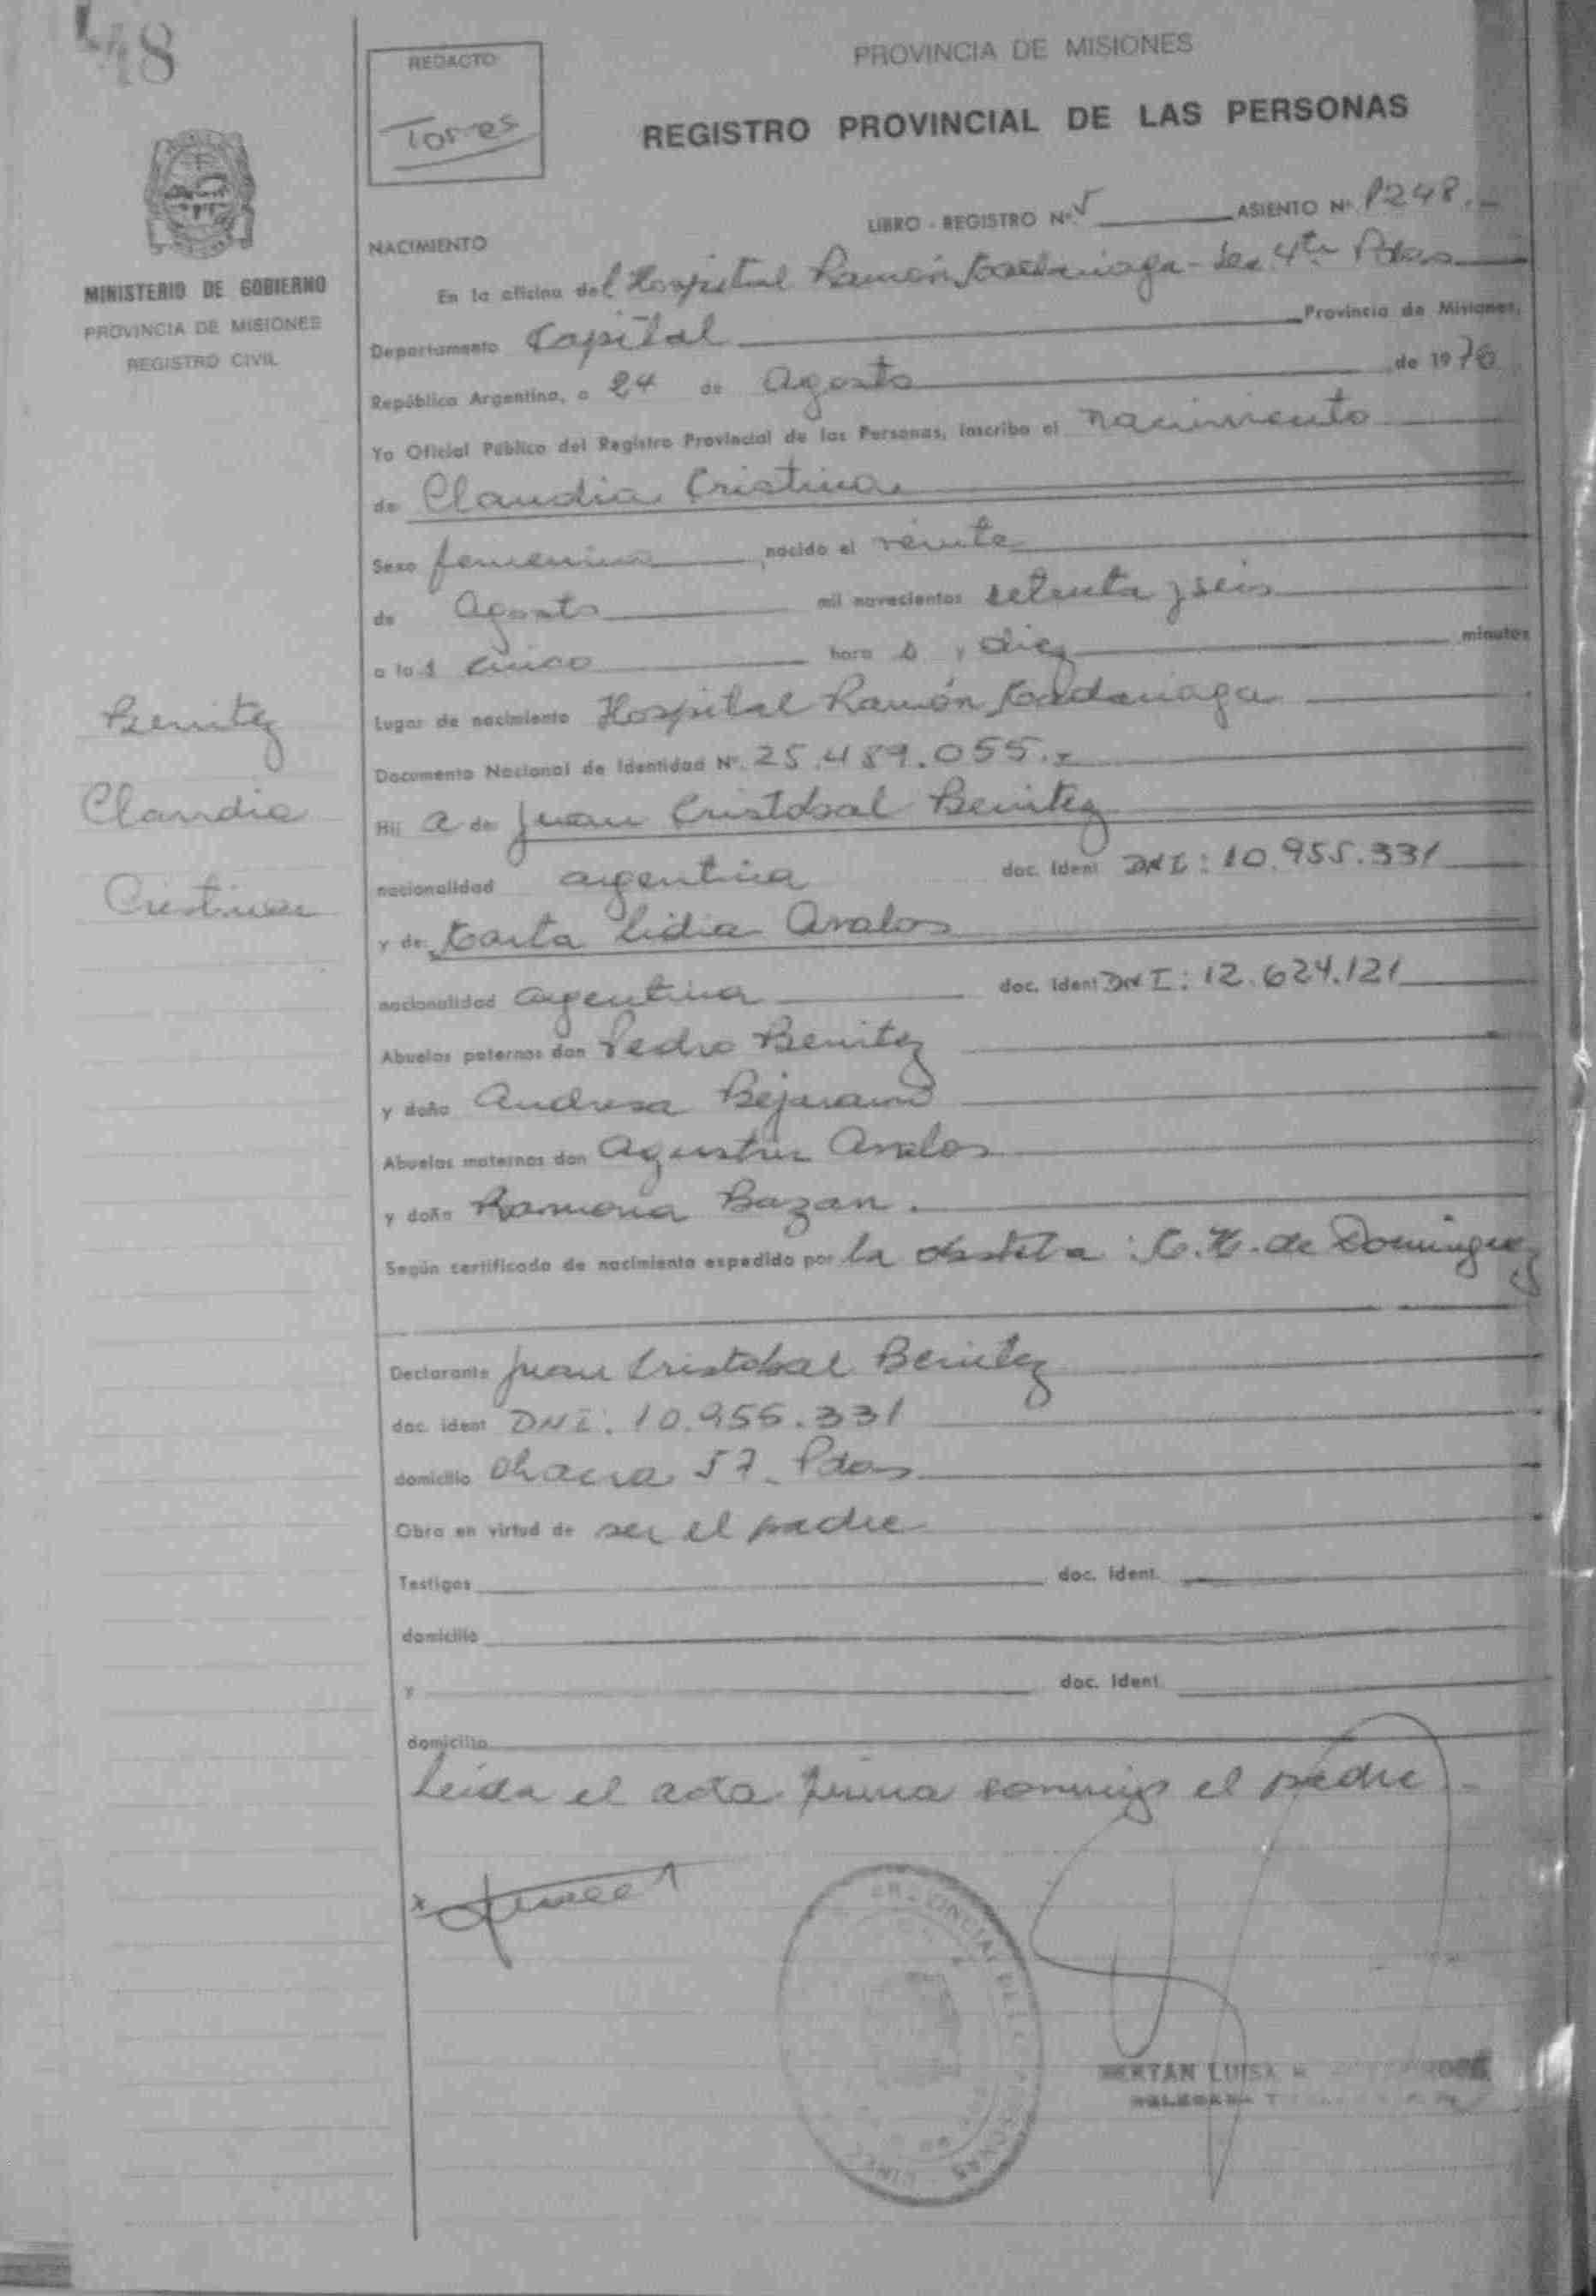 48
REDACTO
Torres
PROVINCIA DE MISIONES
REGISTRO PROVINCIAL DE LAS PERSONAS
MINISTERIO DE GOBIERNO
PROVINCIA DE MISIONES
REGISTRO CIVIL
LIBRO - REGISTRO Nº V ASIENTO Nº 1248.-
NACIMIENTO
En la oficina del Hospital Ramón Madariaga - Sec 4ta Pdas
Departamento Capital Provincia de Misiones,
República Argentina, a 24 de Agosto de 1976
Yo Oficial Público del Registro Provincial de las Personas, inscribo el nacimiento
de Claudia Cristina
Sexo femenino nacido el veinte
de Agosto mil novecientos setenta y seis
a las cinco hora s y diez minutos
Lugar de nacimiento Hospital Ramón Madariaga
Documento Nacional de Identidad Nº. 25.489.055.-
Hij a de Juan Cristobal Benitez
nacionalidad argentina doc. Ident DNI: 10.955.331
y de Marta Lidia Avalos
nacionalidad argentina doc. Ident DNI: 12.624.121
Abuelos paternos don Pedro Benitez
y doña Andresa Bejarano
Abuelos maternos don Agustin Avalos
y doña Ramona Bazan.
Según certificado de nacimiento expedido por la obstéta: M. H. de Dominguez
Declarante Juan Cristobal Benitez
doc. ident DNI: 10.955.331
domicilio Chacra 57 - Pdas
Obra en virtud de ser el padre
Testigos doc. Ident.
domicilio
y doc. Ident.
domicilio
Leida el acta firma conmigo el padre -
Benitez
Claudia
Cristina
BERTAN LUISA